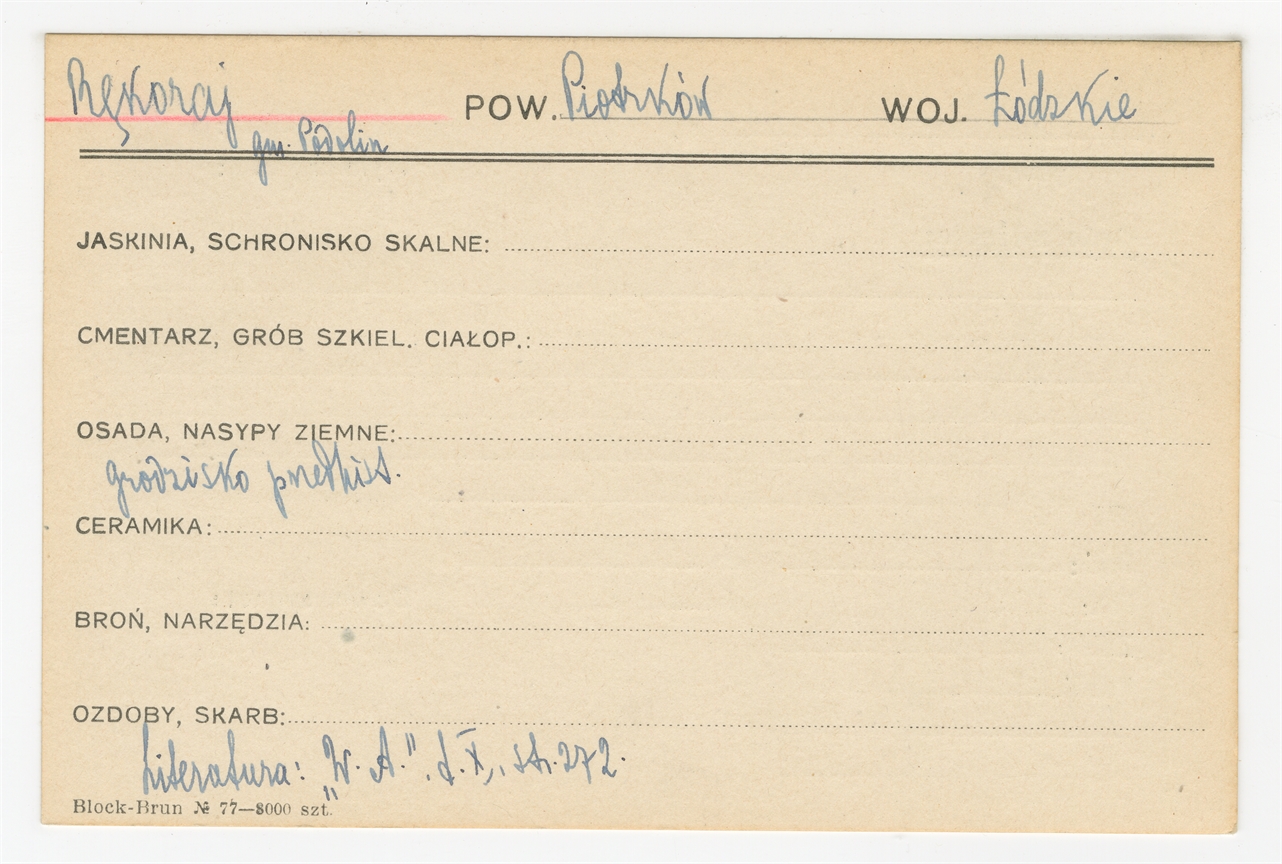 Rękoraj POW. Piotrków WOJ. Łódzkie
gm. Podolin
JASKINIA, SCHRONISKO SKALNE:
CMENTARZ, GRÓB SZKIEL. CIAŁOP.:
OSADA, NASYPY ZIEMNE:
grodzisko predhist.
CERAMIKA:
BROŃ, NARZĘDZIA:
OZDOBY, SKARB:
Literatura: „W. A." , t. X, str. 272.
Block-Brun № 77—8000 szt.